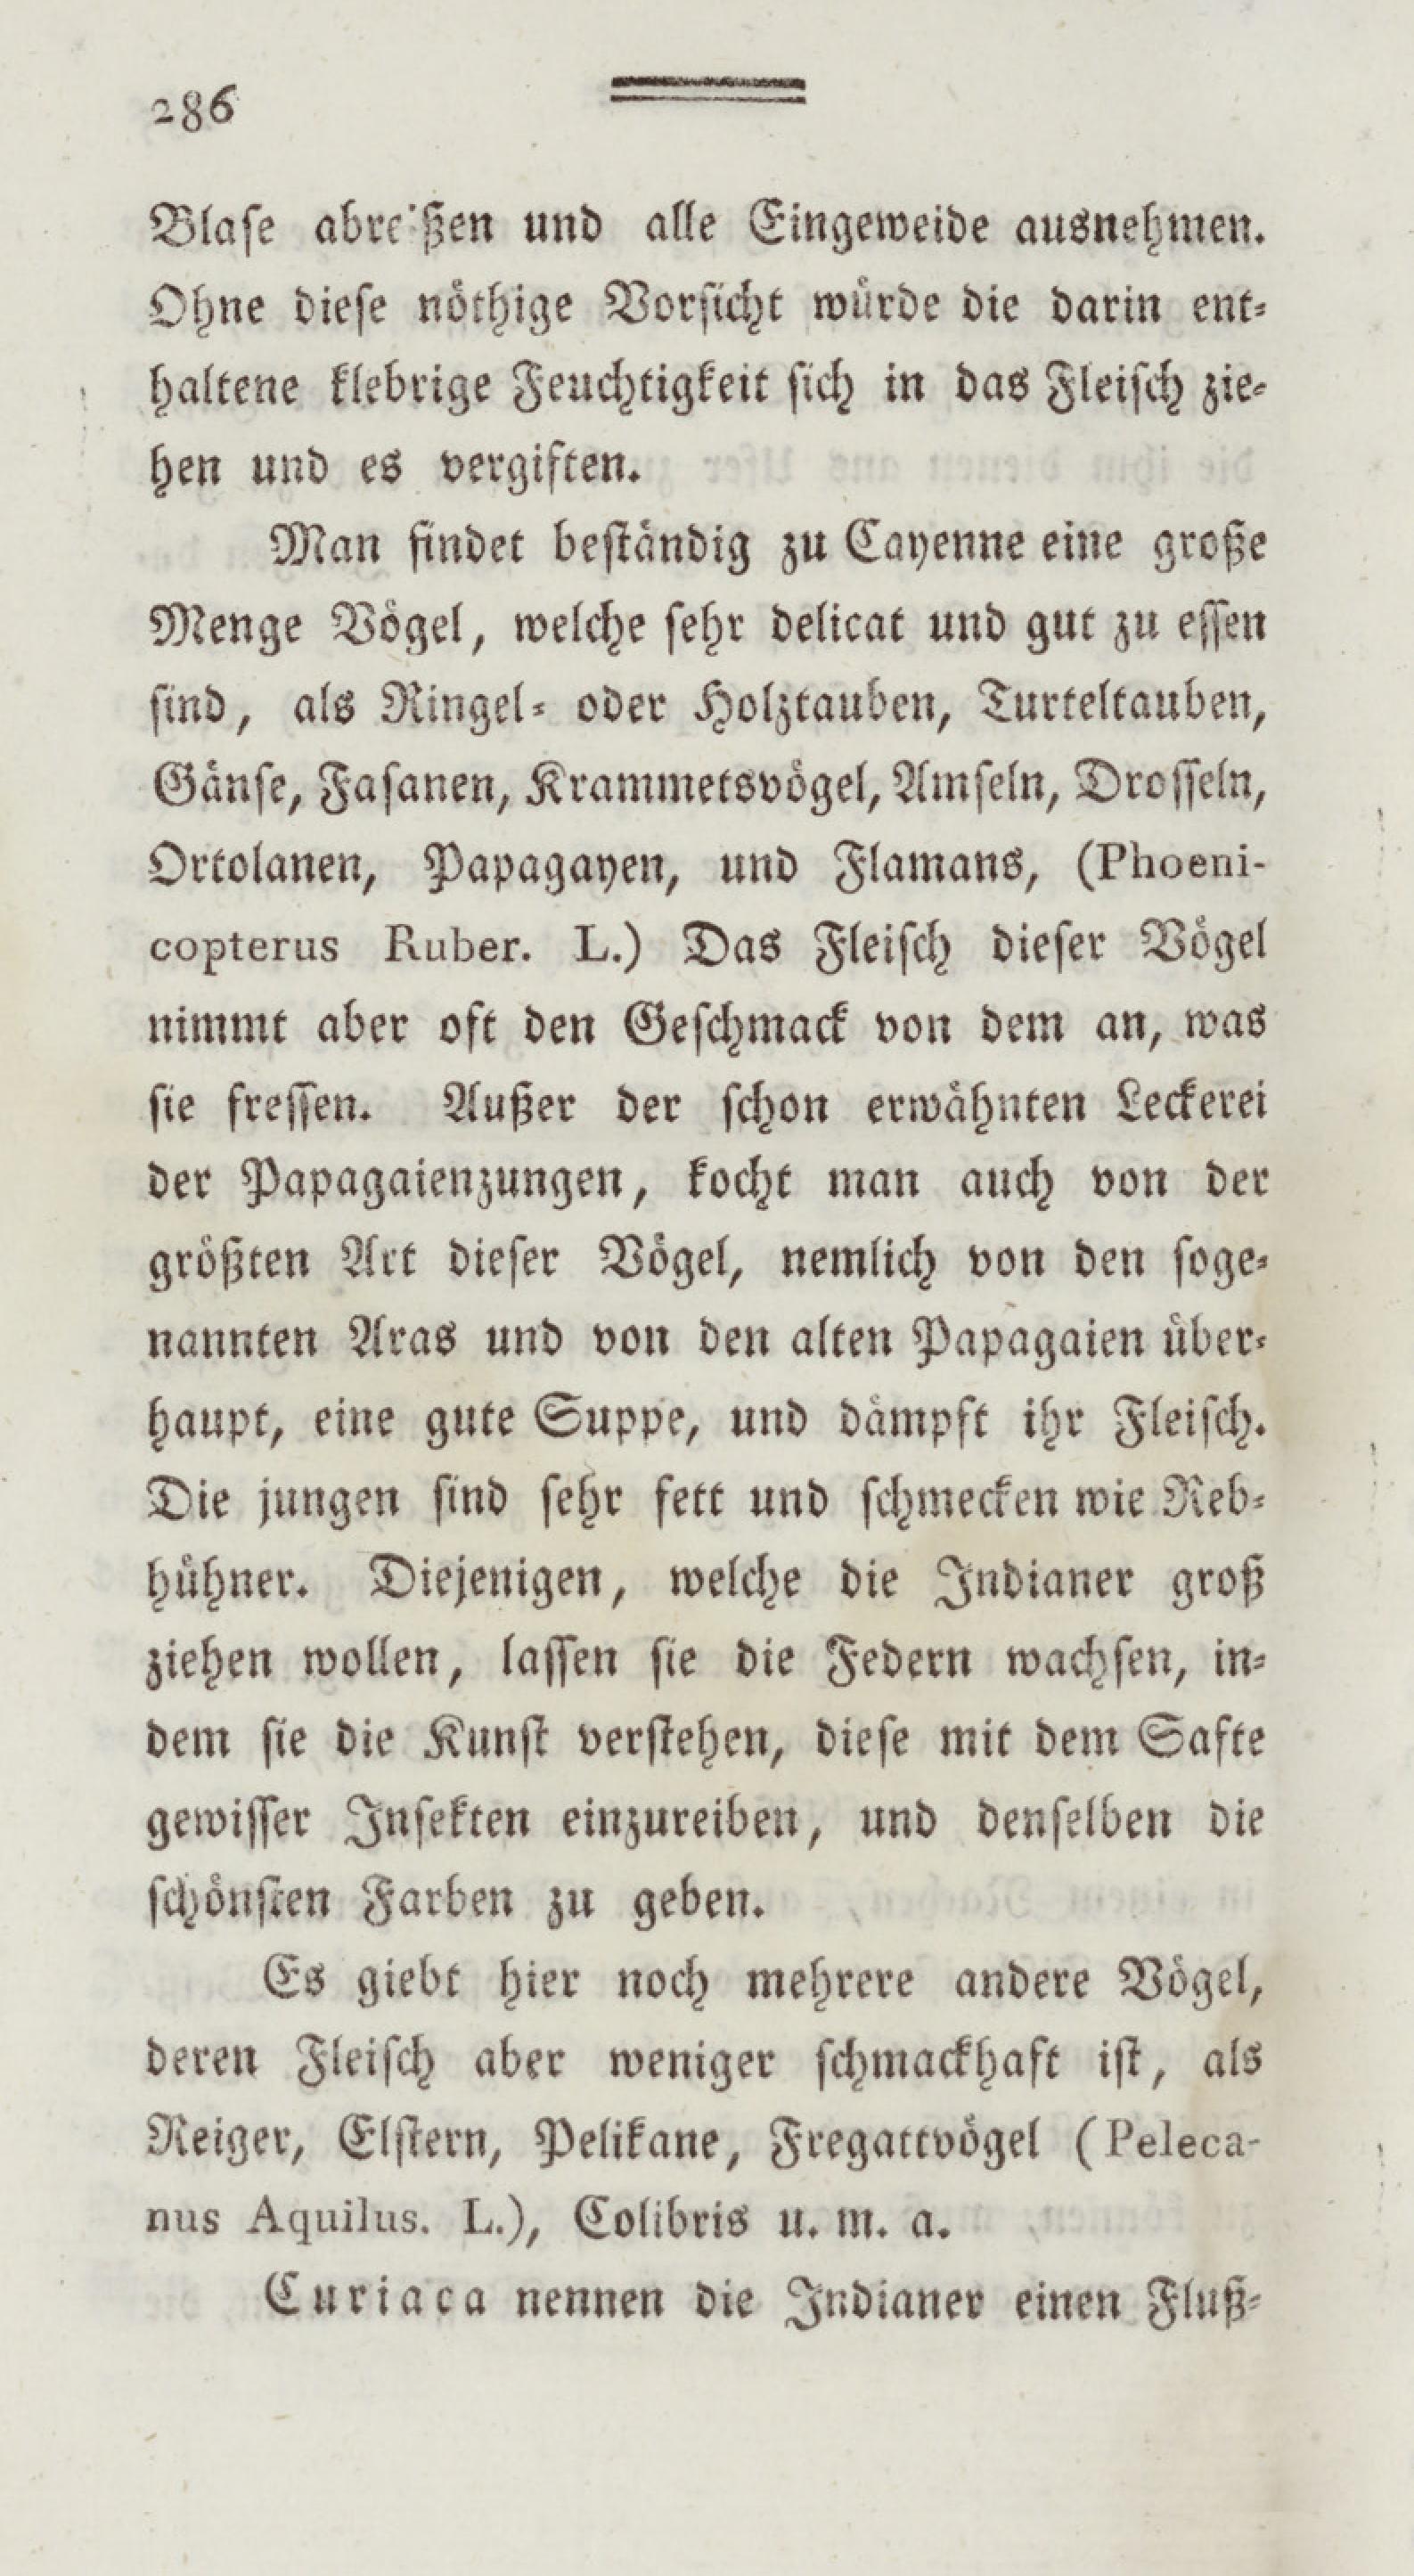 286
Blaſe abreißen und alle Eingeweide ausnehmen.
Ohne dieſe nöthige Vorſicht würde die darin ent-
haltene klebrige Feuchtigkeit ſich in das Fleiſch zie-
hen und es vergiften.
Man findet beſtändig zu Cayenne eine große
Menge Vögel, welche ſehr delicat und gut zu eſſen
ſind, als Ringel- oder Holztauben, Turteltauben,
Gänſe, Faſanen, Krammetsvögel, Amſeln, Droſſeln,
Ortolanen, Papagayen, und Flamans, (Phoeni-
copterus Ruber. L.) Das Fleiſch dieſer Vögel
nimmt aber oft den Geſchmack von dem an, was
ſie freſſen. Außer der ſchon erwähnten Leckerei
der Papagaienzungen, kocht man auch von der
größten Art dieſer Vögel, nemlich von den ſoge-
nannten Aras und von den alten Papagaien über-
haupt, eine gute Suppe, und dämpft ihr Fleiſch.
Die jungen ſind ſehr fett und ſchmecken wie Reb-
hühner. Diejenigen, welche die Indianer groß
ziehen wollen, laſſen ſie die Federn wachſen, in-
dem ſie die Kunſt verſtehen, dieſe mit dem Safte
gewiſſer Inſekten einzureiben, und denſelben die
ſchönſten Farben zu geben.
Es giebt hier noch mehrere andere Vögel,
deren Fleiſch aber weniger ſchmackhaft iſt, als
Reiger, Elſtern, Pelikane, Fregattvögel (Peleca-
nus Aquilus. L.), Colibris u. m. a.
Curiaca nennen die Indianer einen Fluß-